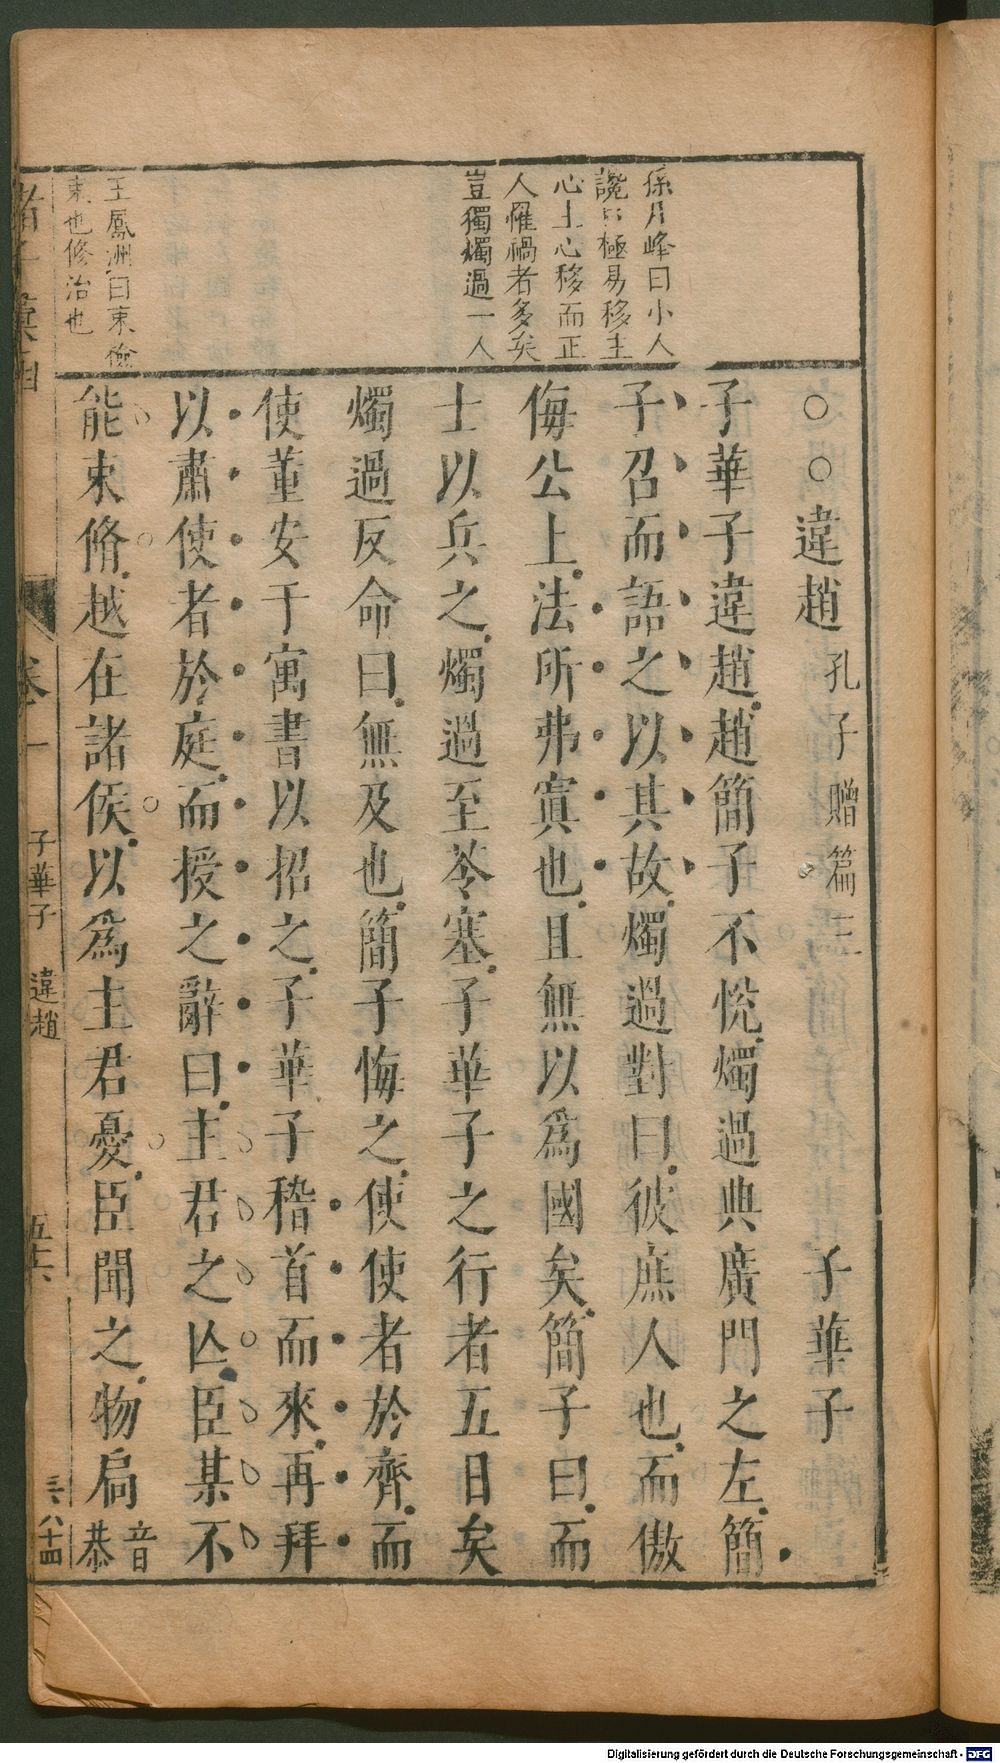 孫月峰曰小人
讒口極易移主
心主心移而正
人罹禍者多矣
豈獨燭過一人
王鳳洲曰束儉
束也修治也
○○違趙 孔子贈篇三 子華子
子華子違趙趙簡子不悅燭過典廣門之左簡
子召而語之以其故燭過對曰彼庶人也而傲
侮公上法所弗寘也且無以爲國矣簡子曰而
士以兵之燭過至苓塞子華子之行者五日矣
燭過反命曰無及也簡子悔之使使者於齊而
使董安于寓書以招之子華子稽首而來再拜
以肅使者於庭而授之辭曰主君之亾臣某不
能束脩越在諸侯以爲主君憂臣聞之物扃音恭
卷一 子華子 違趙 八十四
Digitalisierung gefördert durch die Deutsche Forschungsgemeinschaft - DFG